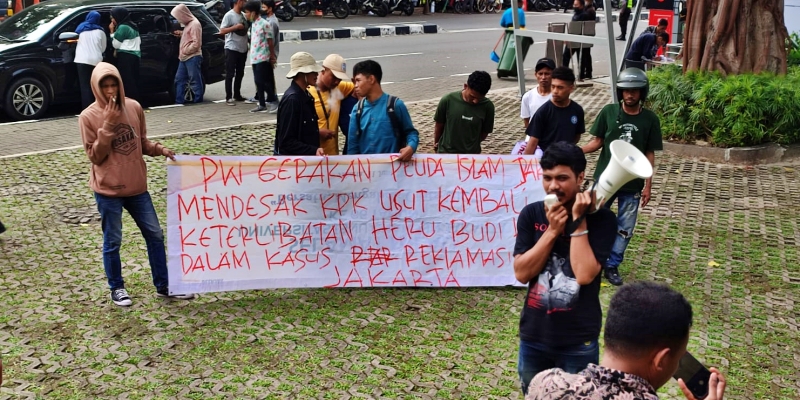 PW GERAKAN PEUDA ISLAM JAK
MENDESAK KPK USUT KEMBALI
KETERLIBATAN HERU BUDI H
DALAM KASUS RAR REKLAMASI
JAKARTA